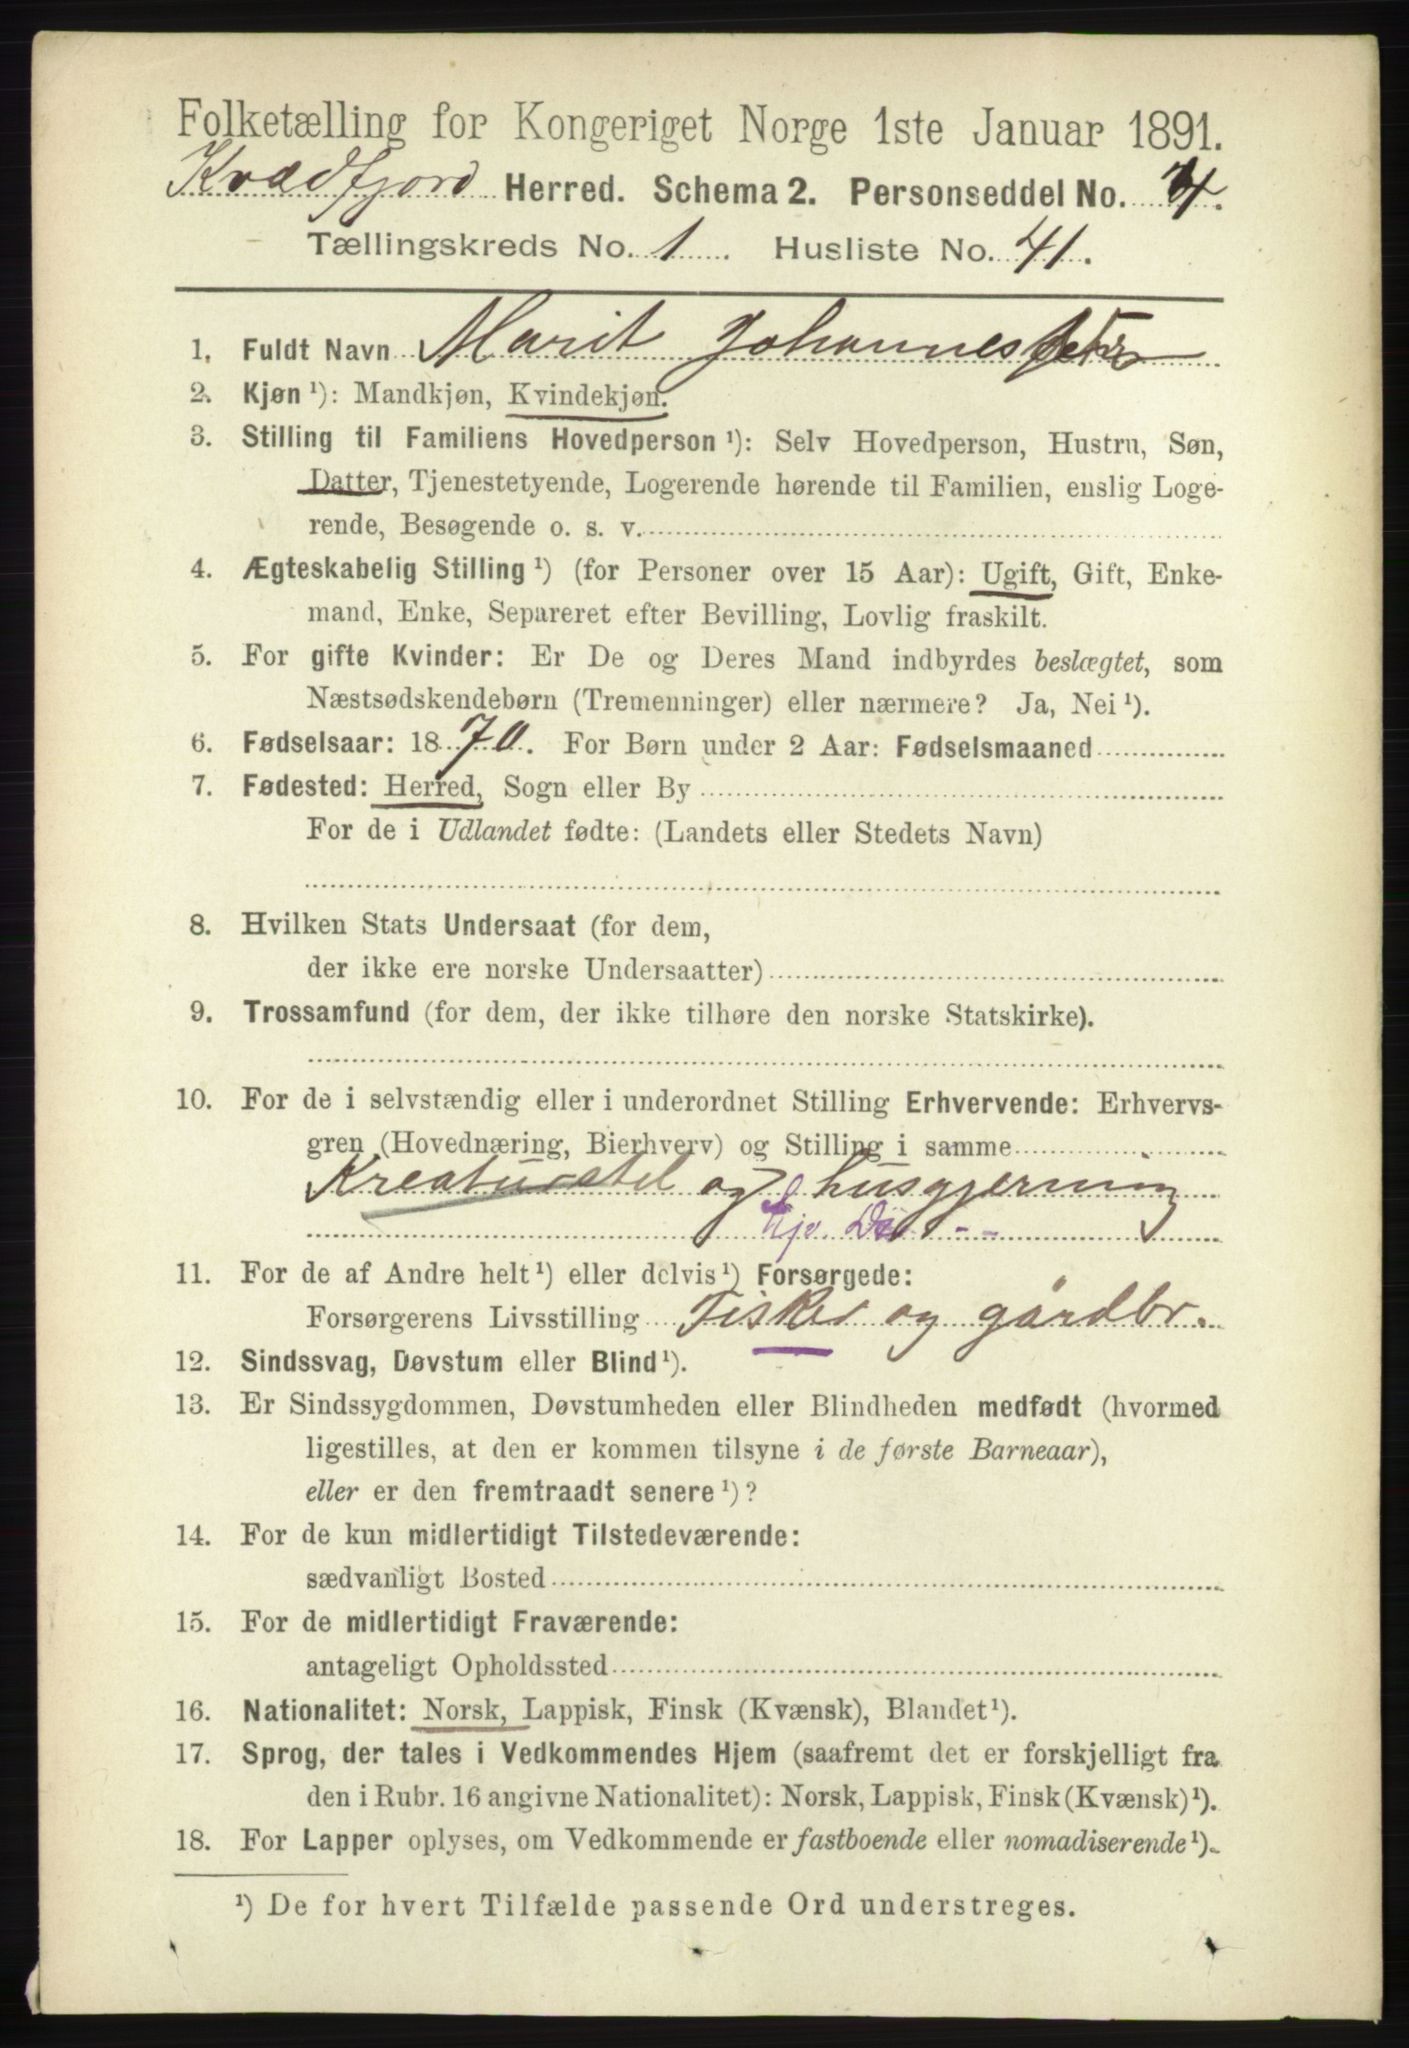 Folketælling for Kongeriget Norge 1ste Januar 1891.
Kvædfjord Herred. Schema 2. Personseddel No. 4.
Tællingskreds No. 1. Husliste No. 41.
1. Fuldt Navn Marit Johannesdatr
2. Kjøn ¹): Mandkjøn, Kvindekjøn.
3. Stilling til Familiens Hovedperson ¹): Selv Hovedperson, Hustru, Søn,
Datter, Tjenestetyende, Logerende hørende til Familien, enslig Loge-
rende, Besøgende o. s. v.
4. Ægteskabelig Stilling ¹) (for Personer over 15 Aar): Ugift, Gift, Enke-
mand, Enke, Separeret efter Bevilling, Lovlig fraskilt.
5. For gifte Kvinder: Er De og Deres Mand indbyrdes beslægtet, som
Næstsødskendebørn (Tremenninger) eller nærmere? Ja, Nei ¹).
6. Fødselsaar: 1870. For Børn under 2 Aar: Fødselsmaaned
7. Fødested: Herred, Sogn eller By
For de i Udlandet fødte: (Landets eller Stedets Navn)
8. Hvilken Stats Undersaat (for dem,
der ikke ere norske Undersaatter)
9. Trossamfund (for dem, der ikke tilhøre den norske Statskirke).
10. For de i selvstændig eller i underordnet Stilling Erhvervende: Erhvervs-
gren (Hovednæring, Bierhverv) og Stilling i samme
Kreaturstel og husgjerning
11. For de af Andre helt ¹) eller delvis ¹) Forsørgede:
Forsørgerens Livsstilling Fisker og gårdbr.
12. Sindssvag, Døvstum eller Blind ¹).
13. Er Sindssygdommen, Døvstumheden eller Blindheden medfødt (hvormed
ligestilles, at den er kommen tilsyne i de første Barneaar),
eller er den fremtraadt senere ¹)?
14. For de kun midlertidigt Tilstedeværende:
sædvanligt Bosted
15. For de midlertidigt Fraværende:
antageligt Opholdssted
16. Nationalitet: Norsk, Lappisk, Finsk (Kvænsk), Blandet ¹).
17. Sprog, der tales i Vedkommendes Hjem (saafremt det er forskjelligt fra
den i Rubr. 16 angivne Nationalitet): Norsk, Lappisk, Finsk (Kvænsk) ¹).
18. For Lapper oplyses, om Vedkommende er fastboende eller nomadiserende ¹).
¹) De for hvert Tilfælde passende Ord understreges.